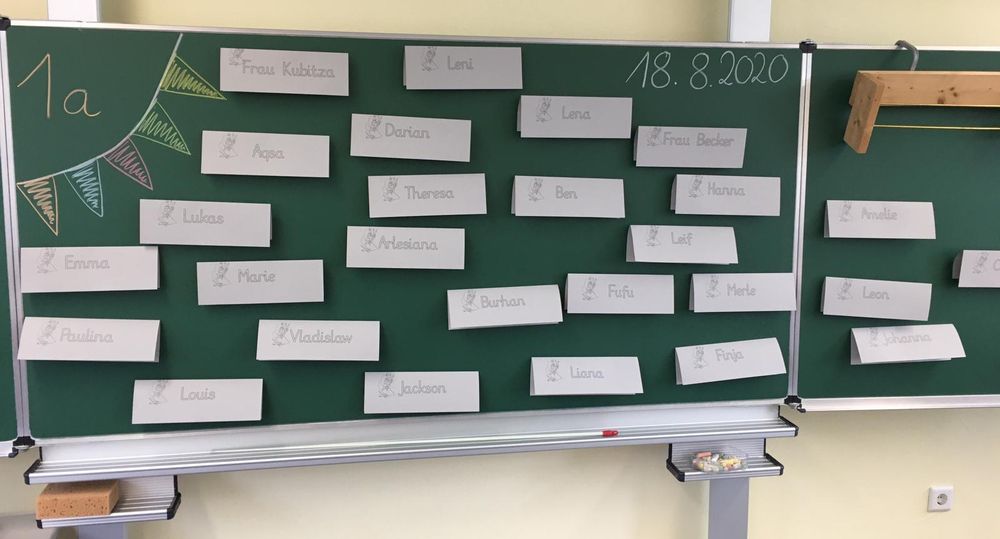 1a
18.8.2020
Frau Kubitza
Leni
Lena
Darian
Frau Becker
Aqsa
Theresa
Ben
Hanna
Lukas
Artesiana
Leif
Amelie
Emma
Marie
Burhan
Fufu
Merle
Leon
Paulina
Vladislaw
Johanna
Liana
Finja
Louis
Jackson